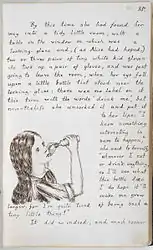 By this time she had found her
way into a tidy little room, with a
table on the window on which was a
looking-glass and, (as Alice had hoped,)
two or three pairs of tiny white kid gloves:
she took up a pair of gloves, and was just
going to leave the room, when her eye fell
upon a little bottle that stood near the
looking-glass: there was no label on it
this time with the words drink me, but
nevertheless she uncorked it and put it
to her lips: "I
know something
interesting is
sure to happen,"
she said to herself,
whenever I eat
or drink anything,
so I'll see what
this bottle does.
I do hope it'll
make me grow
larger, for I'm quite tired
of being such a
tiny little thing!"
It did so indeed, and much sooner